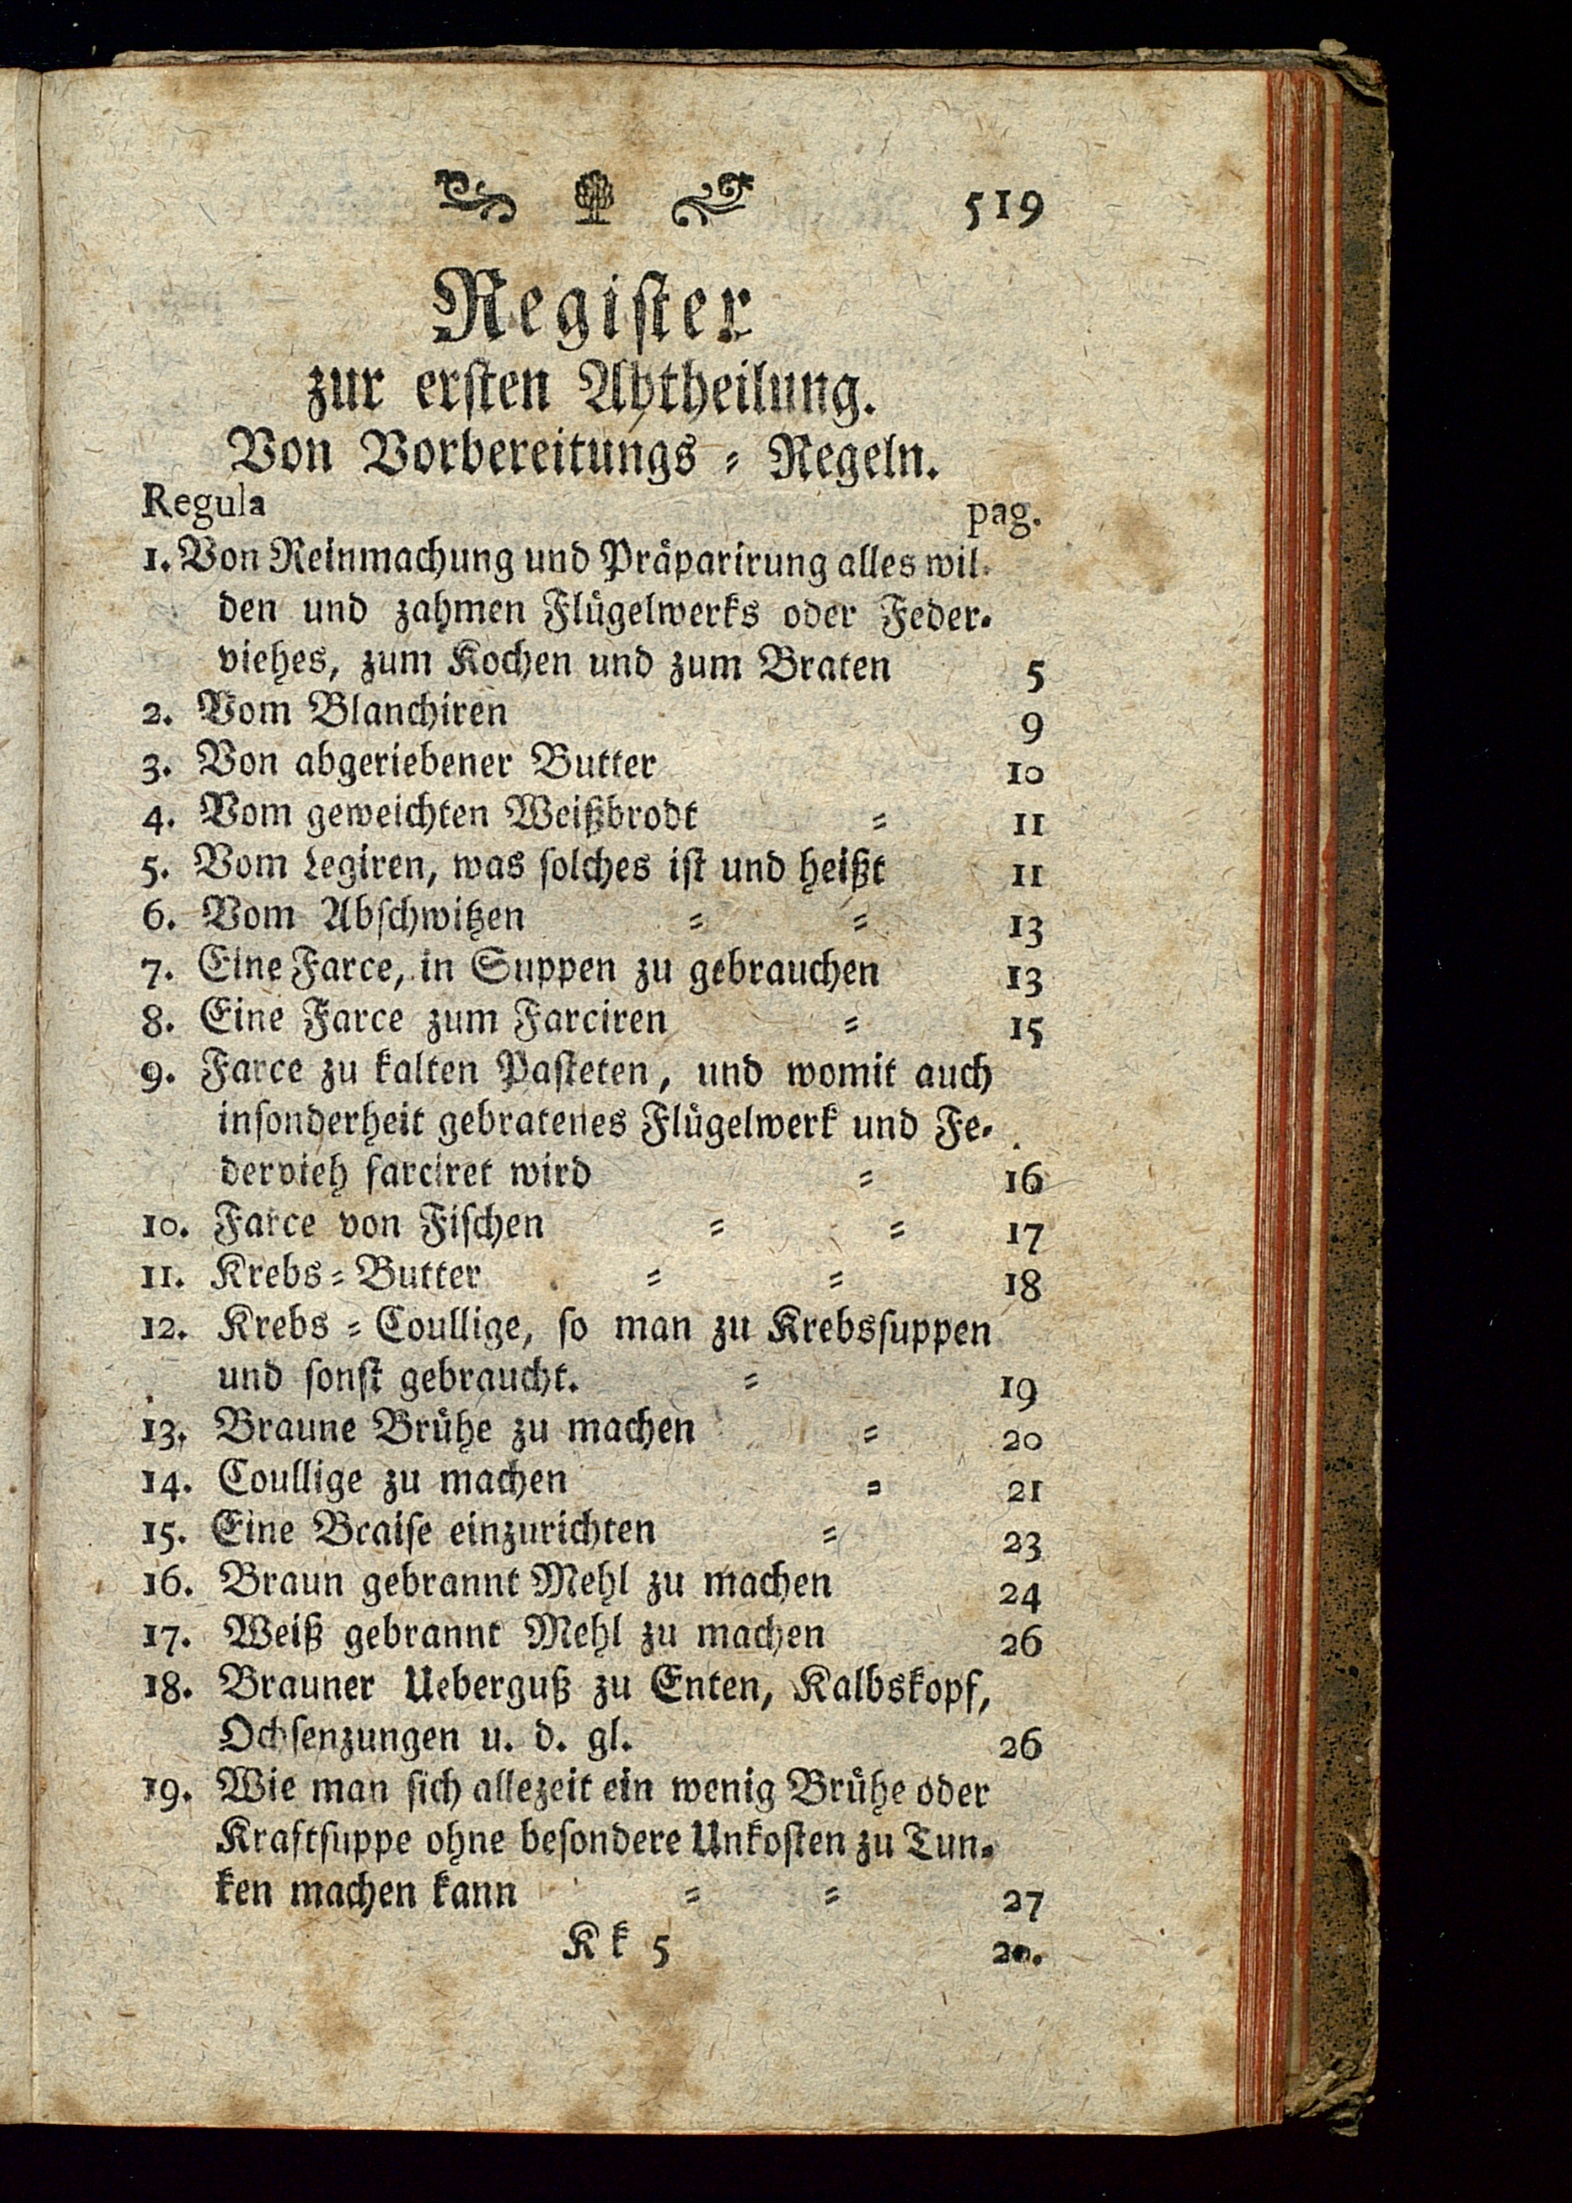 519
Regiſter
zur erſten Abtheilung.
Von Vorbereitungs = Regeln.
Regula pag.
1. Von Reinmachung und Präparirung alles wil-
den und zahmen Flügelwerks oder Feder-
viehes, zum Kochen und zum Braten 5
2. Vom Blanchiren 9
3. Von abgeriebener Butter 10
4. Vom geweichten Weißbrodt = 11
5. Vom Legiren, was ſolches iſt und heißt 11
6. Vom Abſchwitzen = = 13
7. Eine Farce, in Suppen zu gebrauchen 13
8. Eine Farce zum Farciren = 15
9. Farce zu kalten Paſteten, und womit auch
inſonderheit gebratenes Flügelwerk und Fe-
dervieh farciret wird = 16
10. Farce von Fiſchen = = 17
11. Krebs = Butter = = 18
12. Krebs = Coullige, ſo man zu Krebsſuppen
und ſonſt gebraucht. = 19
13. Braune Brühe zu machen = 20
14. Coullige zu machen = 21
15. Eine Braiſe einzurichten = 23
16. Braun gebrannt Mehl zu machen 24
17. Weiß gebrannt Mehl zu machen 26
18. Brauner Ueberguß zu Enten, Kalbskopf,
Ochſenzungen u. d. gl. 26
19. Wie man ſich allezeit ein wenig Brühe oder
Kraftſuppe ohne beſondere Unkoſten zu Tun-
ken machen kann = = 27
Kk 5 20.